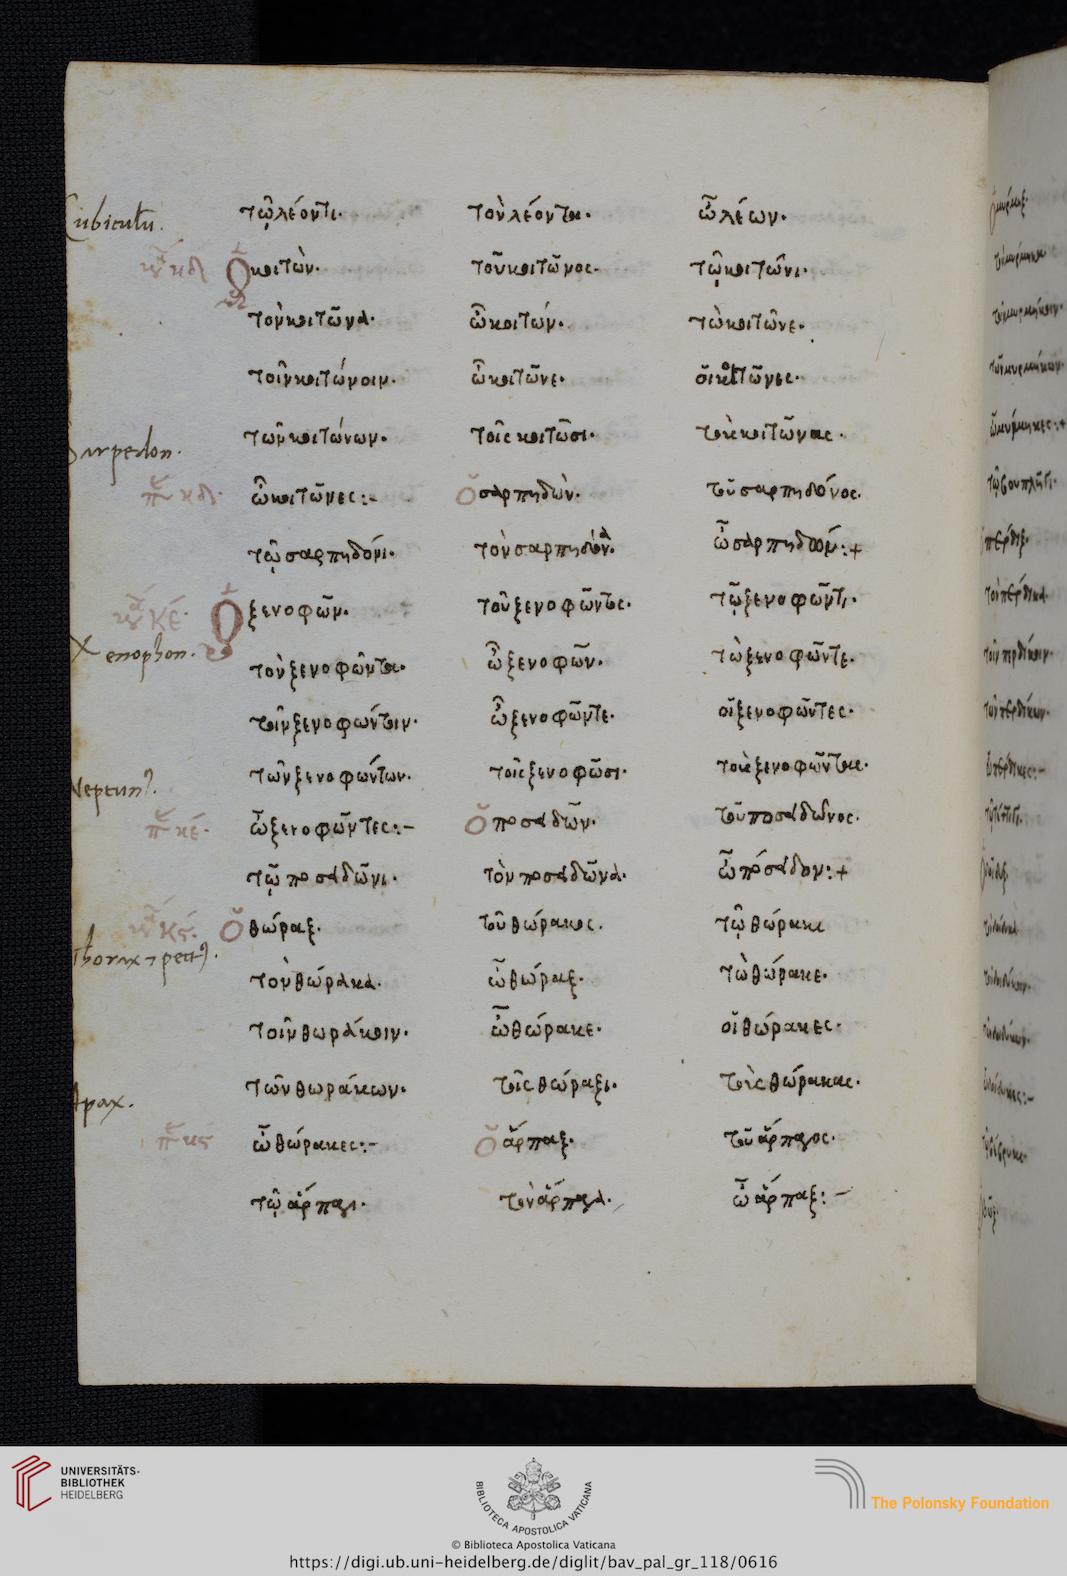 τῷ λέοντι· τὸν λέοντα· ὦ λέων·
Cubicułu.
Ὁ κοιτὼν· τοῦ κοιτῶνος· τῷ κοιτῶνι·
τὸν κοιτῶνα· ὦ κοιτών· τὼ κοιτῶνε·
τοῖν κοιτώνοιν· ὦ κοιτῶνε· οἱ κοιτῶνες·
τῶν κοιτώνων· τοῖς κοιτῶσι· τοὺς κοιτῶνας·
Sarpedon.
κδ· ὦ κοιτῶνες:- Ὁ σαρπηδὼν· τοῦ σαρπηδόνος·
τῷ σαρπηδόνι· τὸν σαρπηδόνα· ὦ σαρπηδόν:+
κέ· Ὁ ξενοφῶν· τοῦ ξενοφῶντος· τῷ ξενοφῶντι·
Xenophon.
τὸν ξενοφῶντα· ὦ ξενοφῶν· τὼ ξενοφῶντε·
τοῖν ξενοφώντοιν· ὦ ξενοφῶντε· οἱ ξενοφῶντες·
τῶν ξενοφώντων· τοῖς ξενοφῶσι· τοὺς ξενοφῶντας·
Neptun9.
κέ· ὦ ξενοφῶντες:- Ὁ ποσειδῶν· τοῦ ποσειδῶνος·
τῷ ποσειδῶνι· τὸν ποσειδῶνα· ὦ πόσειδον:+
κϛ· Ὁ θώραξ· τοῦ θώρακος· τῷ θώρακι
τὸν θώρακα· ὦ θώραξ· τὼ θώρακε·
τοῖν θωράκοιν· ὦ θώρακε· οἱ θώρακες·
τῶν θωράκων· τοῖς θώραξι· τοὺς θώρακας·
Arpax.
κϛ ὦ θώρακες:- Ὁ ἅρπαξ· τοῦ ἅρπαγος·
τῷ ἅρπαγι· τὸν ἅρπαγα· ὦ ἅρπαξ:-
UNIVERSITÄTS-
BIBLIOTHEK
HEIDELBERG
BIBLIOTECA APOSTOLICA VATICANA
The Polonsky Foundation
© Biblioteca Apostolica Vaticana
https://digi.ub.uni-heidelberg.de/diglit/bav_pal_gr_118/0616